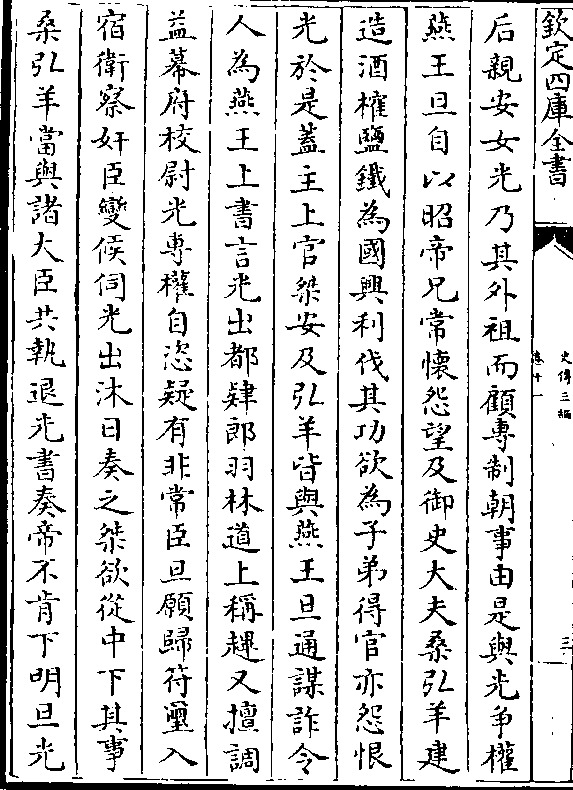 欽定四庫全書
史傳三編
卷十一
三
后親安女光乃其外祖而顧專制朝事由是與光爭權
燕王旦自以昭帝兄常懷怨望及御史大夫桑弘羊建
造酒榷鹽鐵為國興利伐其功欲為子弟得官亦怨恨
光於是蓋主上官桀安及弘羊皆與燕王旦通謀詐令
人為燕王上書言光出都肄郎羽林道上稱趕又擅調
益幕府校尉光專權自恣疑有非常臣旦願歸符璽入
宿衛察奸臣變候伺光出沐日奏之桀欲從中下其事
桑弘羊當與諸大臣共執退光書奏帝不肯下明旦光